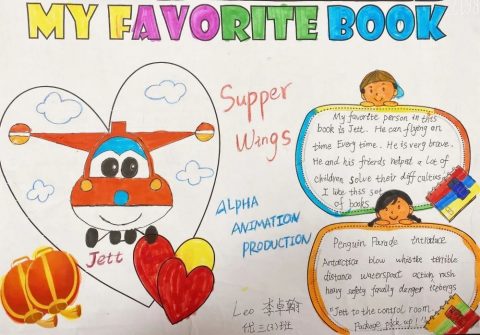 MY FAVORITE BOOK
Supper
Wings
Jett
ALPHA
ANIMATION
PRODUCTION
My favorite person in this
book is Jett. He can flying on
time Every time. He is very brave.
He and his friends helped a lot of
children solve their difficulties
I like this set
of books
Penguin Parade introduce
Antarctica blow whistle terrible
distance waterspout action rash
heavy safety finally danger icebergs
"Jett to the control room.
Package pick up!"
Leo 李卓翰
优三(3)班